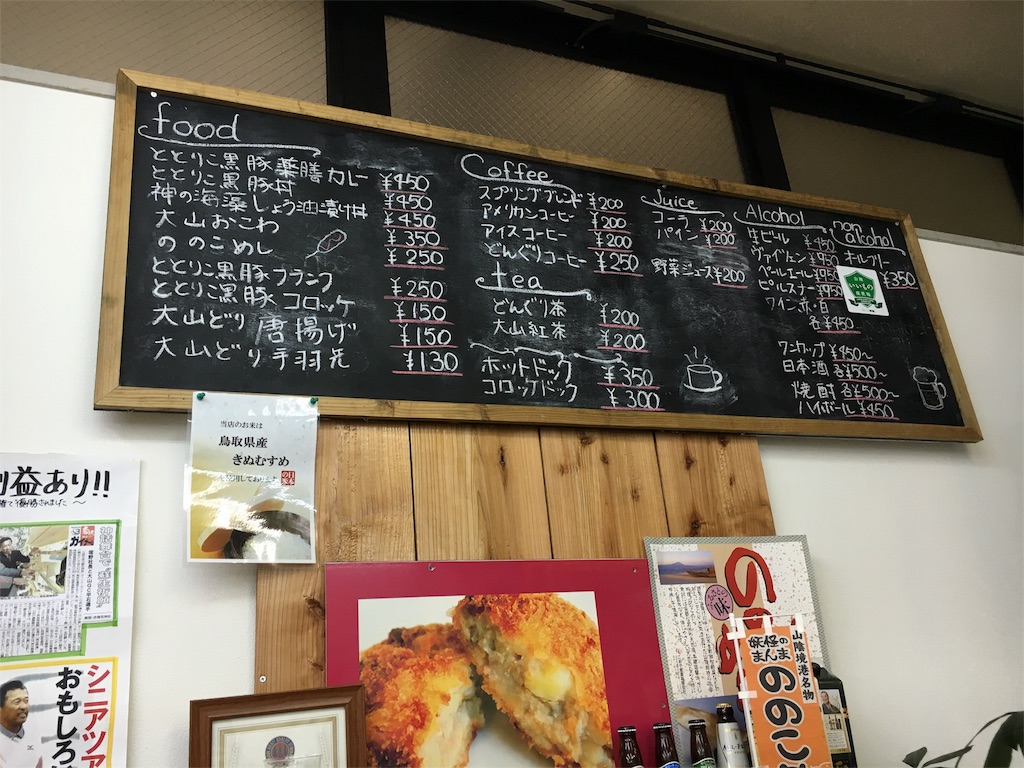 food
ととりこ黒豚薬膳カレー ¥450
ととりこ黒豚丼 ¥450
神の海藻しょう油漬け丼 ¥450
大山おこわ ¥350
ののこめし ¥250
ととりこ黒豚フランク ¥250
ととりこ黒豚コロッケ ¥150
大山どり唐揚げ ¥150
大山どり手羽元 ¥130
Coffee
スプリングブレンド ¥200
アメリカンコーヒー ¥200
アイスコーヒー ¥200
どんぐりコーヒー ¥250
tea
どんぐり茶 ¥200
大山紅茶 ¥200
ホットドック ¥350
コロッケドック ¥300
Juice
コーラ ¥200
パイン ¥200
野菜ジュース ¥200
Alcohol
生ビール ¥450
ヴァイツェン ¥950
ペールエール ¥950
ピルスナー ¥950
ワイン赤・白
各¥450
ワンカップ ¥450~
日本酒 各¥500~
焼酎 各¥500~
ハイボール ¥450
non
alcohol
オールフリー
¥350
いいもの
当店のお米は
鳥取県産
きぬむすめ
を使用しております
日本の米
利益あり!!
シニアツア
おもしろ
味
山陰境港名物
妖怪の
まんま
ののこ